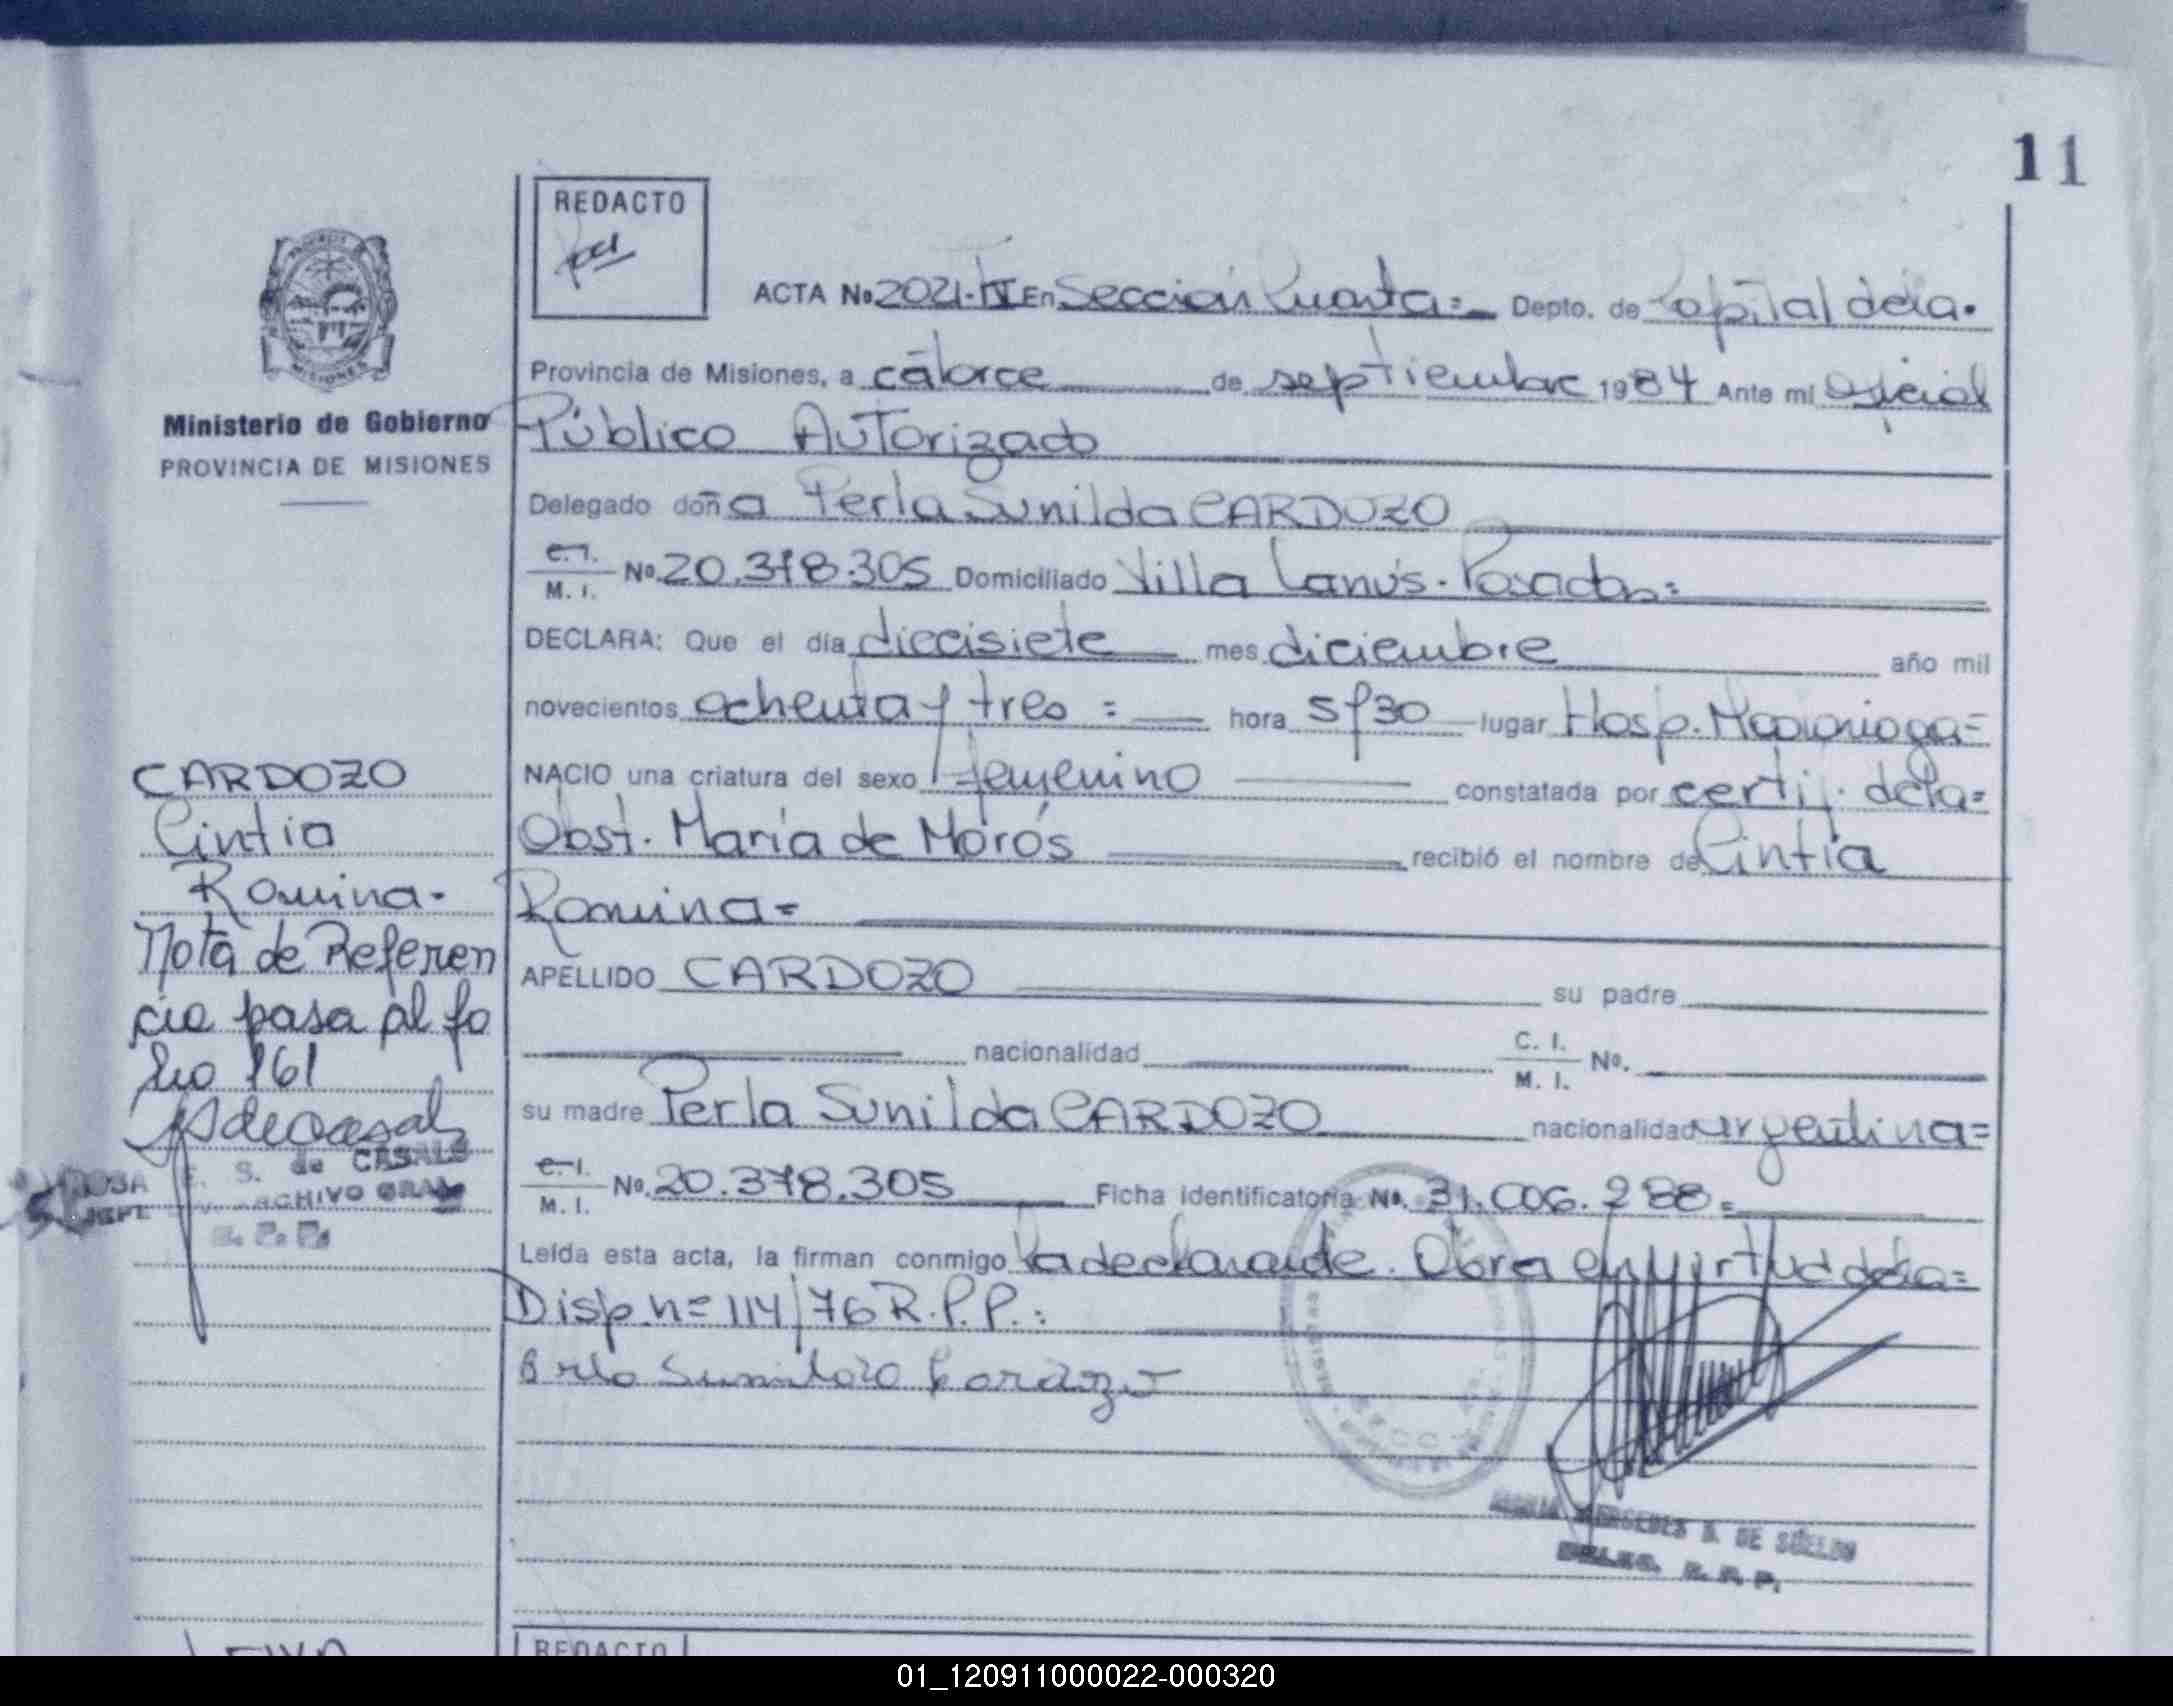 11
REDACTO
ACTA No 2021-IV En Sección Cuarta = Depto. de Capital de la.
Provincia de Misiones, a catorce de septiembre 1984 Ante mi Oficial
Público Autorizado
Delegado doña Perla Sunilda CARDOZO
C. I. M. I. No. 20.378.305 Domiciliado Villa Lanús. Posadas =
DECLARA: Que el día diecisiete mes diciembre año mil
novecientos ochenta y tres = hora 5/30 lugar Hosp. Madariaga =
NACIO una criatura del sexo femenino constatada por certif. de la =
Obst. María de Morós recibió el nombre de Cintia
Romina =
APELLIDO CARDOZO su padre
nacionalidad C. I. M. I. No.
su madre Perla Sunilda CARDOZO nacionalidad argentina =
C. I. M. I. No. 20.378.305 Ficha identificatoria No. 31.006.288 =
Leída esta acta, la firman conmigo la declarante. Obra en virtud de la =
Disp. n= 114/76 R.P.P. :
DE SUELDO
DELEG. R. P. P.
Ministerio de Gobierno
PROVINCIA DE MISIONES
MISIONES
CARDOZO
Cintia
Romina -
Nota de Referen
cia pasa al fo
lio 161
S. de CASALS
ARCHIVO GRAL
R. P. P.
REDACTO
01_120911000022-000320